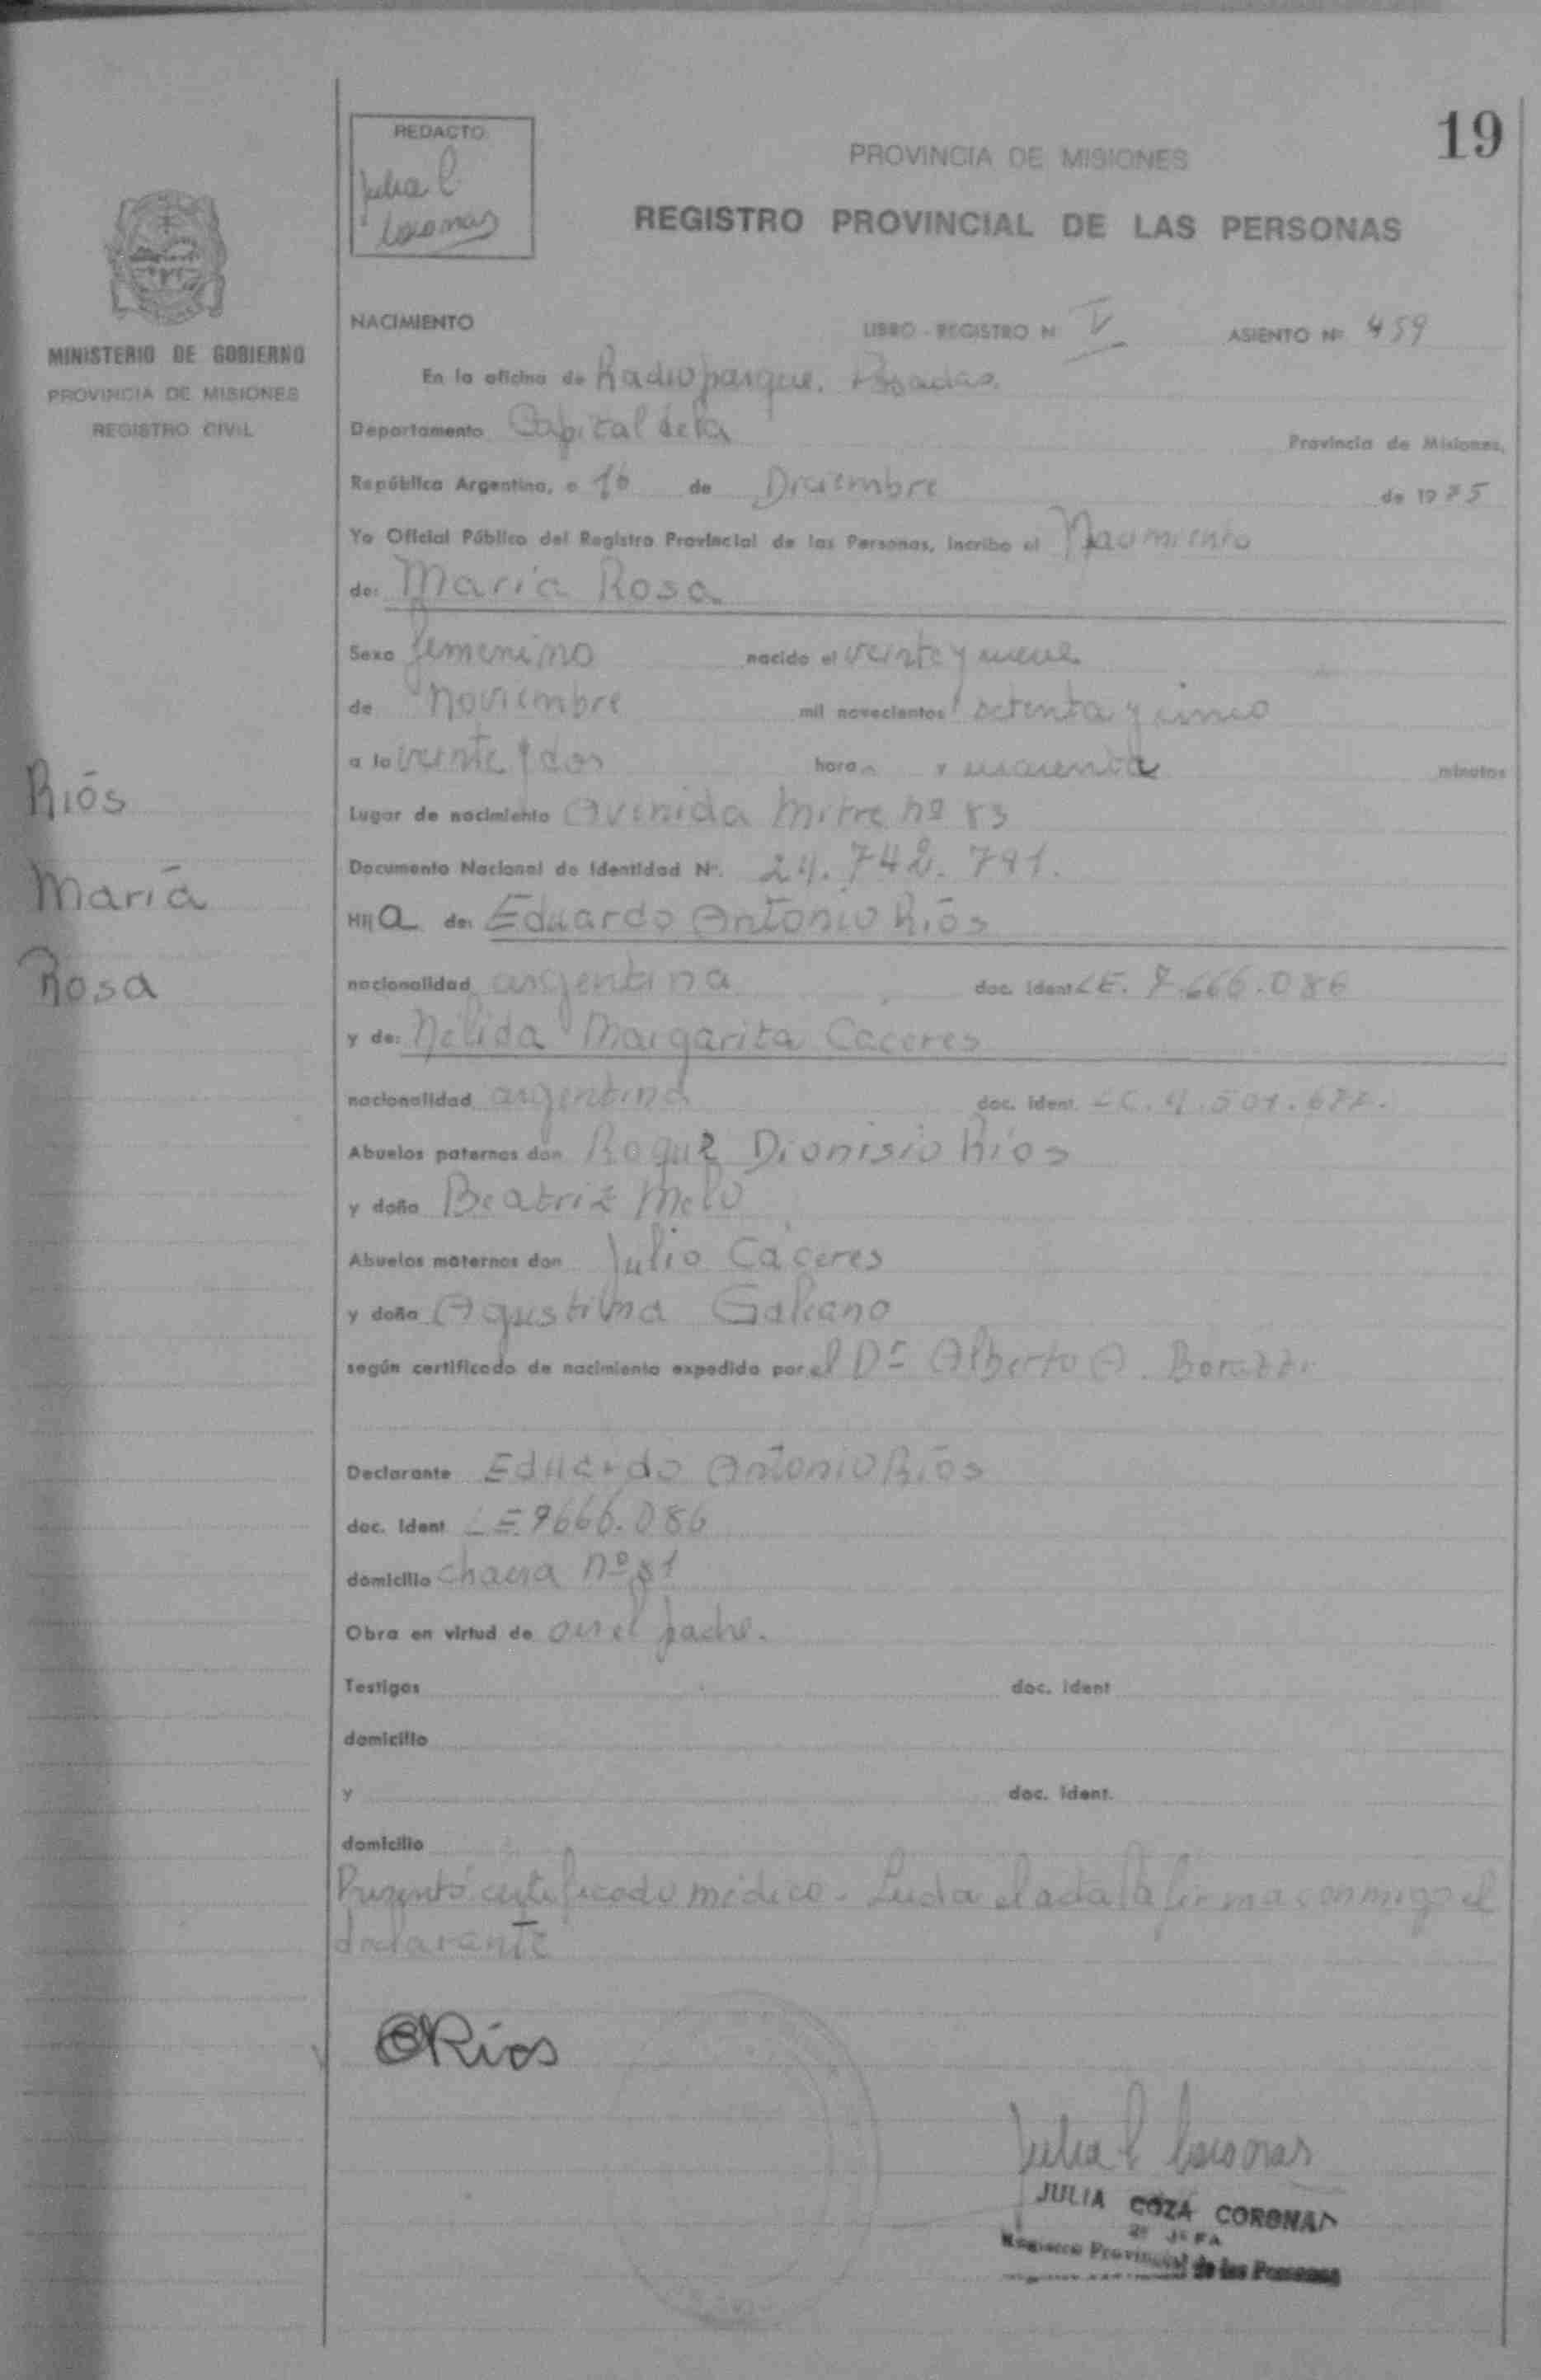 19
REDACTO
Julia C.
PROVINCIA DE MISIONES
REGISTRO PROVINCIAL DE LAS PERSONAS
MINISTERIO DE GOBIERNO
PROVINCIA DE MISIONES
REGISTRO CIVIL
NACIMIENTO LIBRO - REGISTRO N V ASIENTO Nº 459
En la oficina de Radioparque. Posadas.
Departamento Capital de la Provincia de Misiones,
República Argentina, a 16 de Diciembre de 1975
Yo Oficial Público del Registro Provincial de las Personas, inscribo el Nacimiento
de: María Rosa
Sexo femenino nacido el veinte y nueve
de noviembre mil novecientos setenta y cinco
a la veinte y dos horas y cuarenta minutos
Ríos
Lugar de nacimiento Avenida Mitre nº 83
Documento Nacional de Identidad Nº. 24.742.791.
María
Hija de: Eduardo Antonio Ríos
Rosa
nacionalidad argentina doc. Ident LE. 7.666.086
y de: Nélida Margarita Caceres
nacionalidad argentina doc. Ident. LC. 4.501.677.
Abuelos paternos don Roque Dionisio Ríos
y doña Beatriz Melo
Abuelos maternos don Julio Cáceres
y doña Agustina Galeano
según certificado de nacimiento expedido por el Dr Alberto A.
Declarante Eduardo Antonio Ríos
doc. Ident LE 7666.086
domicilio chacra nº 81
Obra en virtud de ser el padre.
Testigos doc. Ident
domicilio
y doc. Ident.
domicilio
Presentó certificado médico. Leida el acta la firma conmigo el
declarante
Ríos
Julia C
JULIA COZA CORONA
2º JEFA
Registro Provincial de las Personas